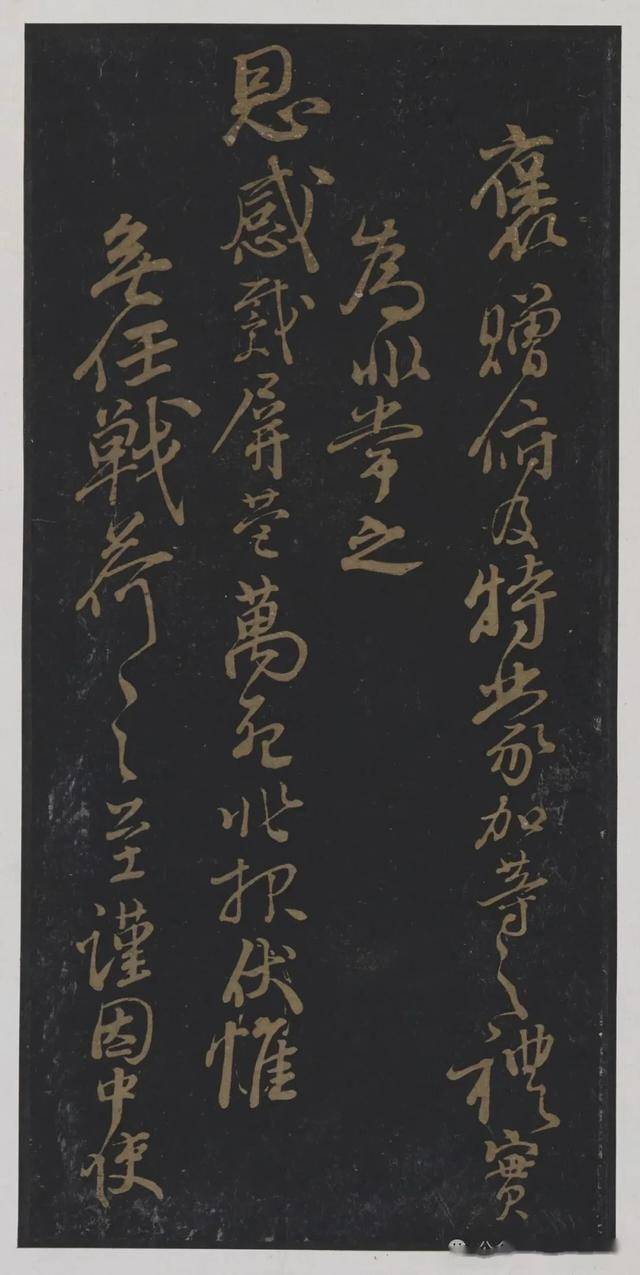 褒贈俯及特蒙加等之禮實
為非常之
恩感戴屏營萬死報伏惟
無任戰荷之至謹因中使